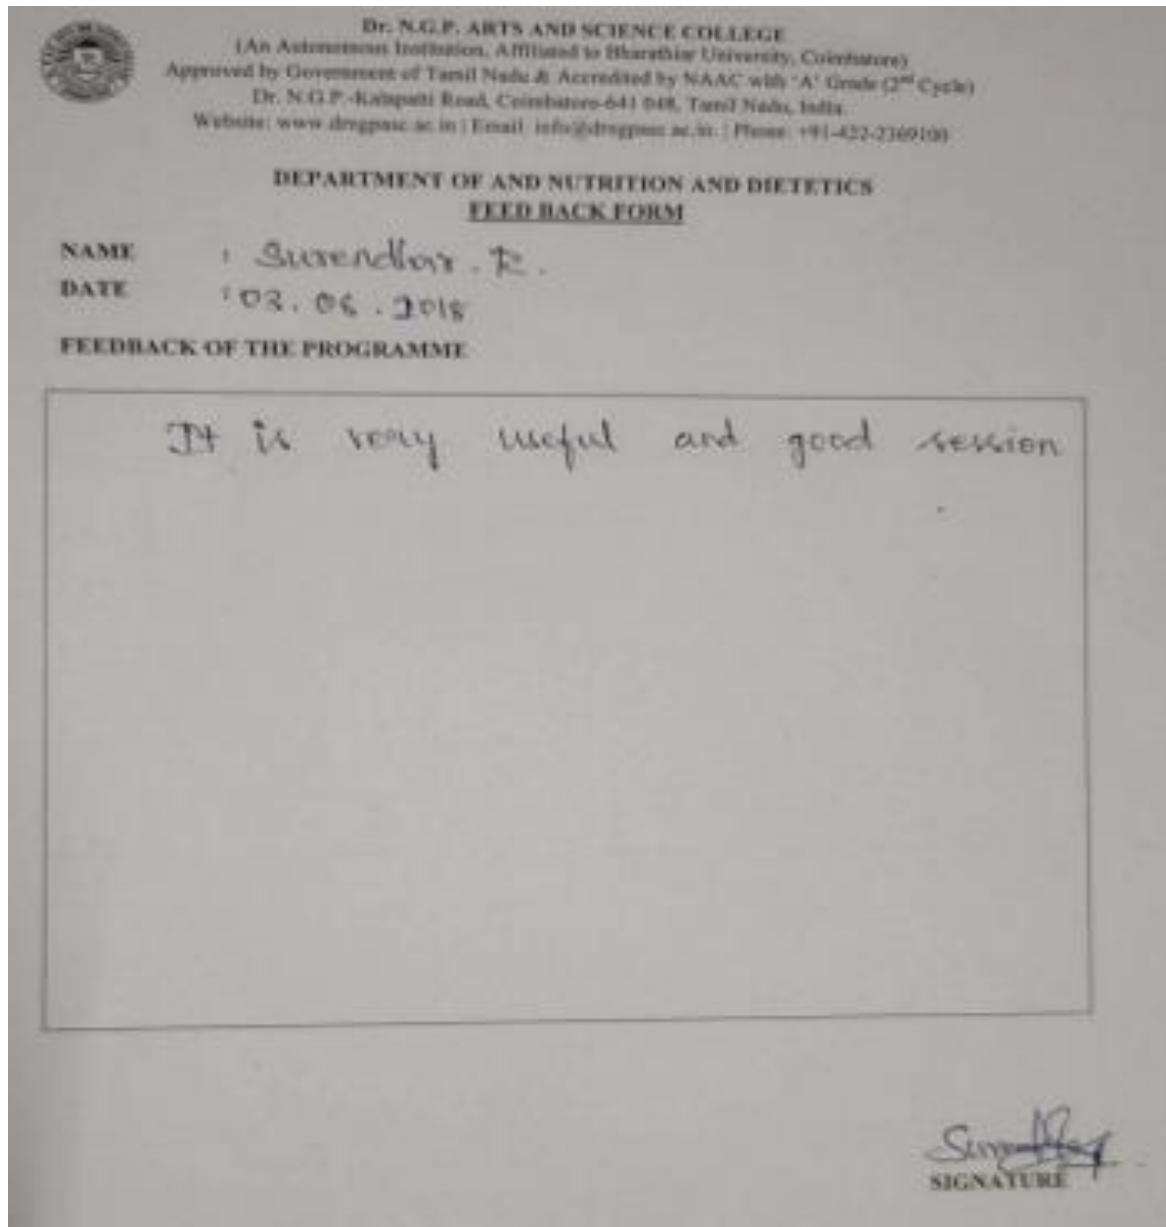 Dr. N.G.P. ARTS AND SCIENCE COLLEGE
(An Autonomous Institution, Affiliated to Bharathiar University, Coimbatore)
Approved by Government of Tamil Nadu & Accredited by NAAC with 'A' Grade (2nd Cycle)
Dr. N.G.P.-Kalapatti Road, Coimbatore-641 048, Tamil Nadu, India.
Website: www.drngpasc.ac.in | Email: info@drngpasc.ac.in | Phone: +91-422-2369100
DEPARTMENT OF AND NUTRITION AND DIETETICS
FEED BACK FORM
NAME : Surendhar. R.
DATE : 03. 06. 2018
FEEDBACK OF THE PROGRAMME
It is very useful and good session
.
SIGNATURE